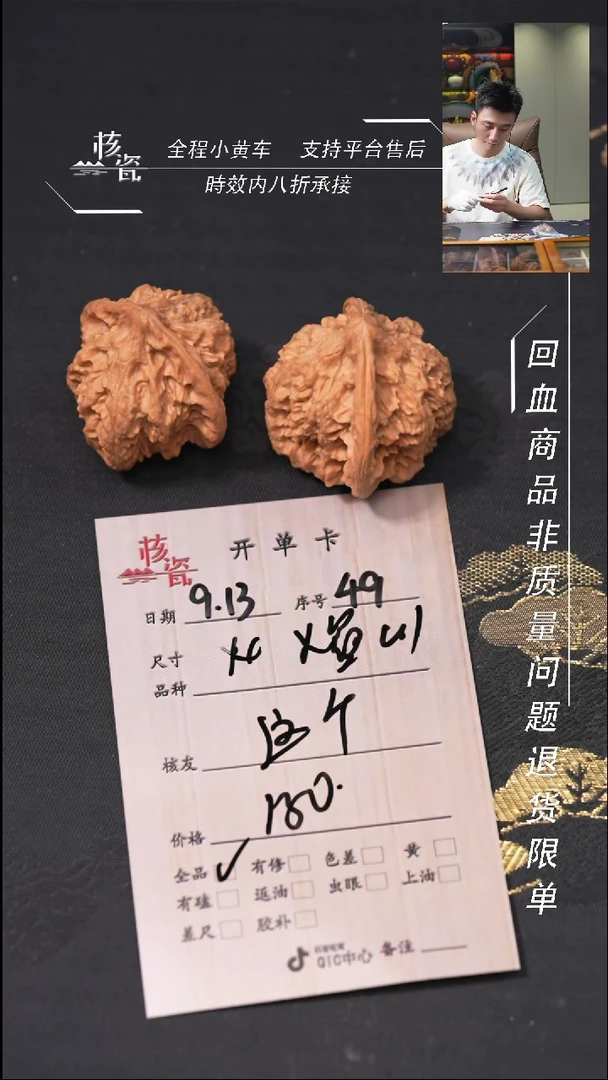 核瓷
全程小黄车 支持平台售后
時效内八折承接
回血商品非质量问题退货限单
核瓷 开单卡
日期 9.13 序号 49
尺寸
品种
核友 这个
价格 180.
全品 ✓ 有修 色差 黄
有磕 返油 虫眼 上油
差尺 胶补
QIC中心 备注